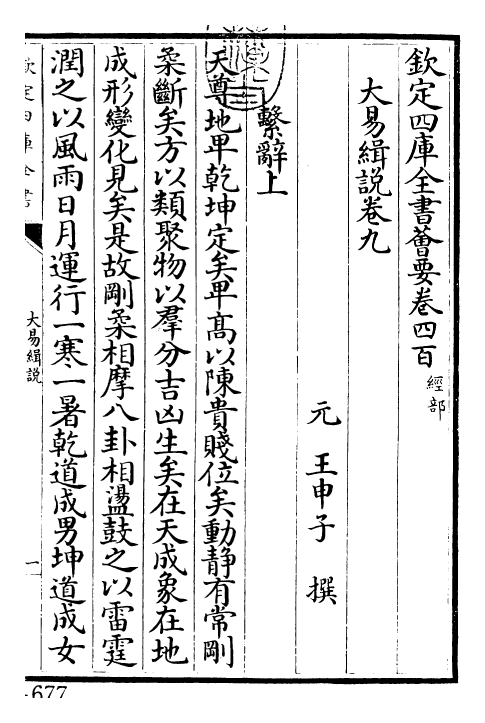 欽定四庫全書薈要卷四百 經部
大易緝說卷九
元 王申子 撰
繫辭上
天尊地卑乾坤定矣卑髙以陳貴賤位矣動靜有常剛
柔斷矣方以類聚物以羣分吉凶生矣在天成象在地
成形變化見矣是故剛柔相摩八卦相盪鼓之以雷霆
潤之以風雨日月運行一寒一暑乾道成男坤道成女
欽定四庫全書
大易緝說
一
-677